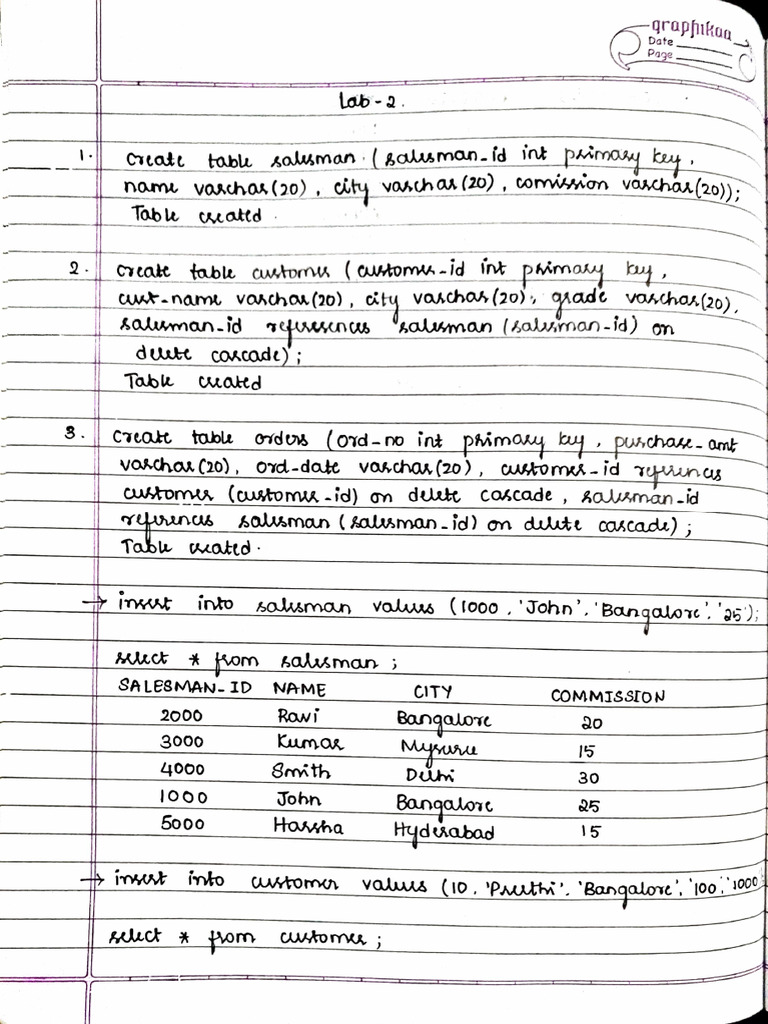 graphikaa
Date
Page
Lab-2.
1. Create table salesman (salesman_id int primary key,
name varchar(20), city varchar(20), comission varchar(20));
Table created.
2. Create table customer (customer_id int primary key,
cust_name varchar(20), city varchar(20), grade varchar(20),
salesman_id references salesman (salesman_id) on
delete cascade);
Table created
3. Create table orders (ord_no int primary key, purchase_amt
varchar(20), ord_date varchar(20), customer_id references
customer (customer_id) on delete cascade, salesman_id
references salesman (salesman_id) on delete cascade);
Table created.
→ insert into salesman values (1000, 'John', 'Bangalore', '25');
select * from salesman;
SALESMAN_ID NAME CITY COMMISSION
2000 Ravi Bangalore 20
3000 Kumar Mysuru 15
4000 Smith Delhi 30
1000 John Bangalore 25
5000 Harsha Hyderabad 15
→ insert into customer values (10, 'Preethi', 'Bangalore', '100', '1000
select * from customer;